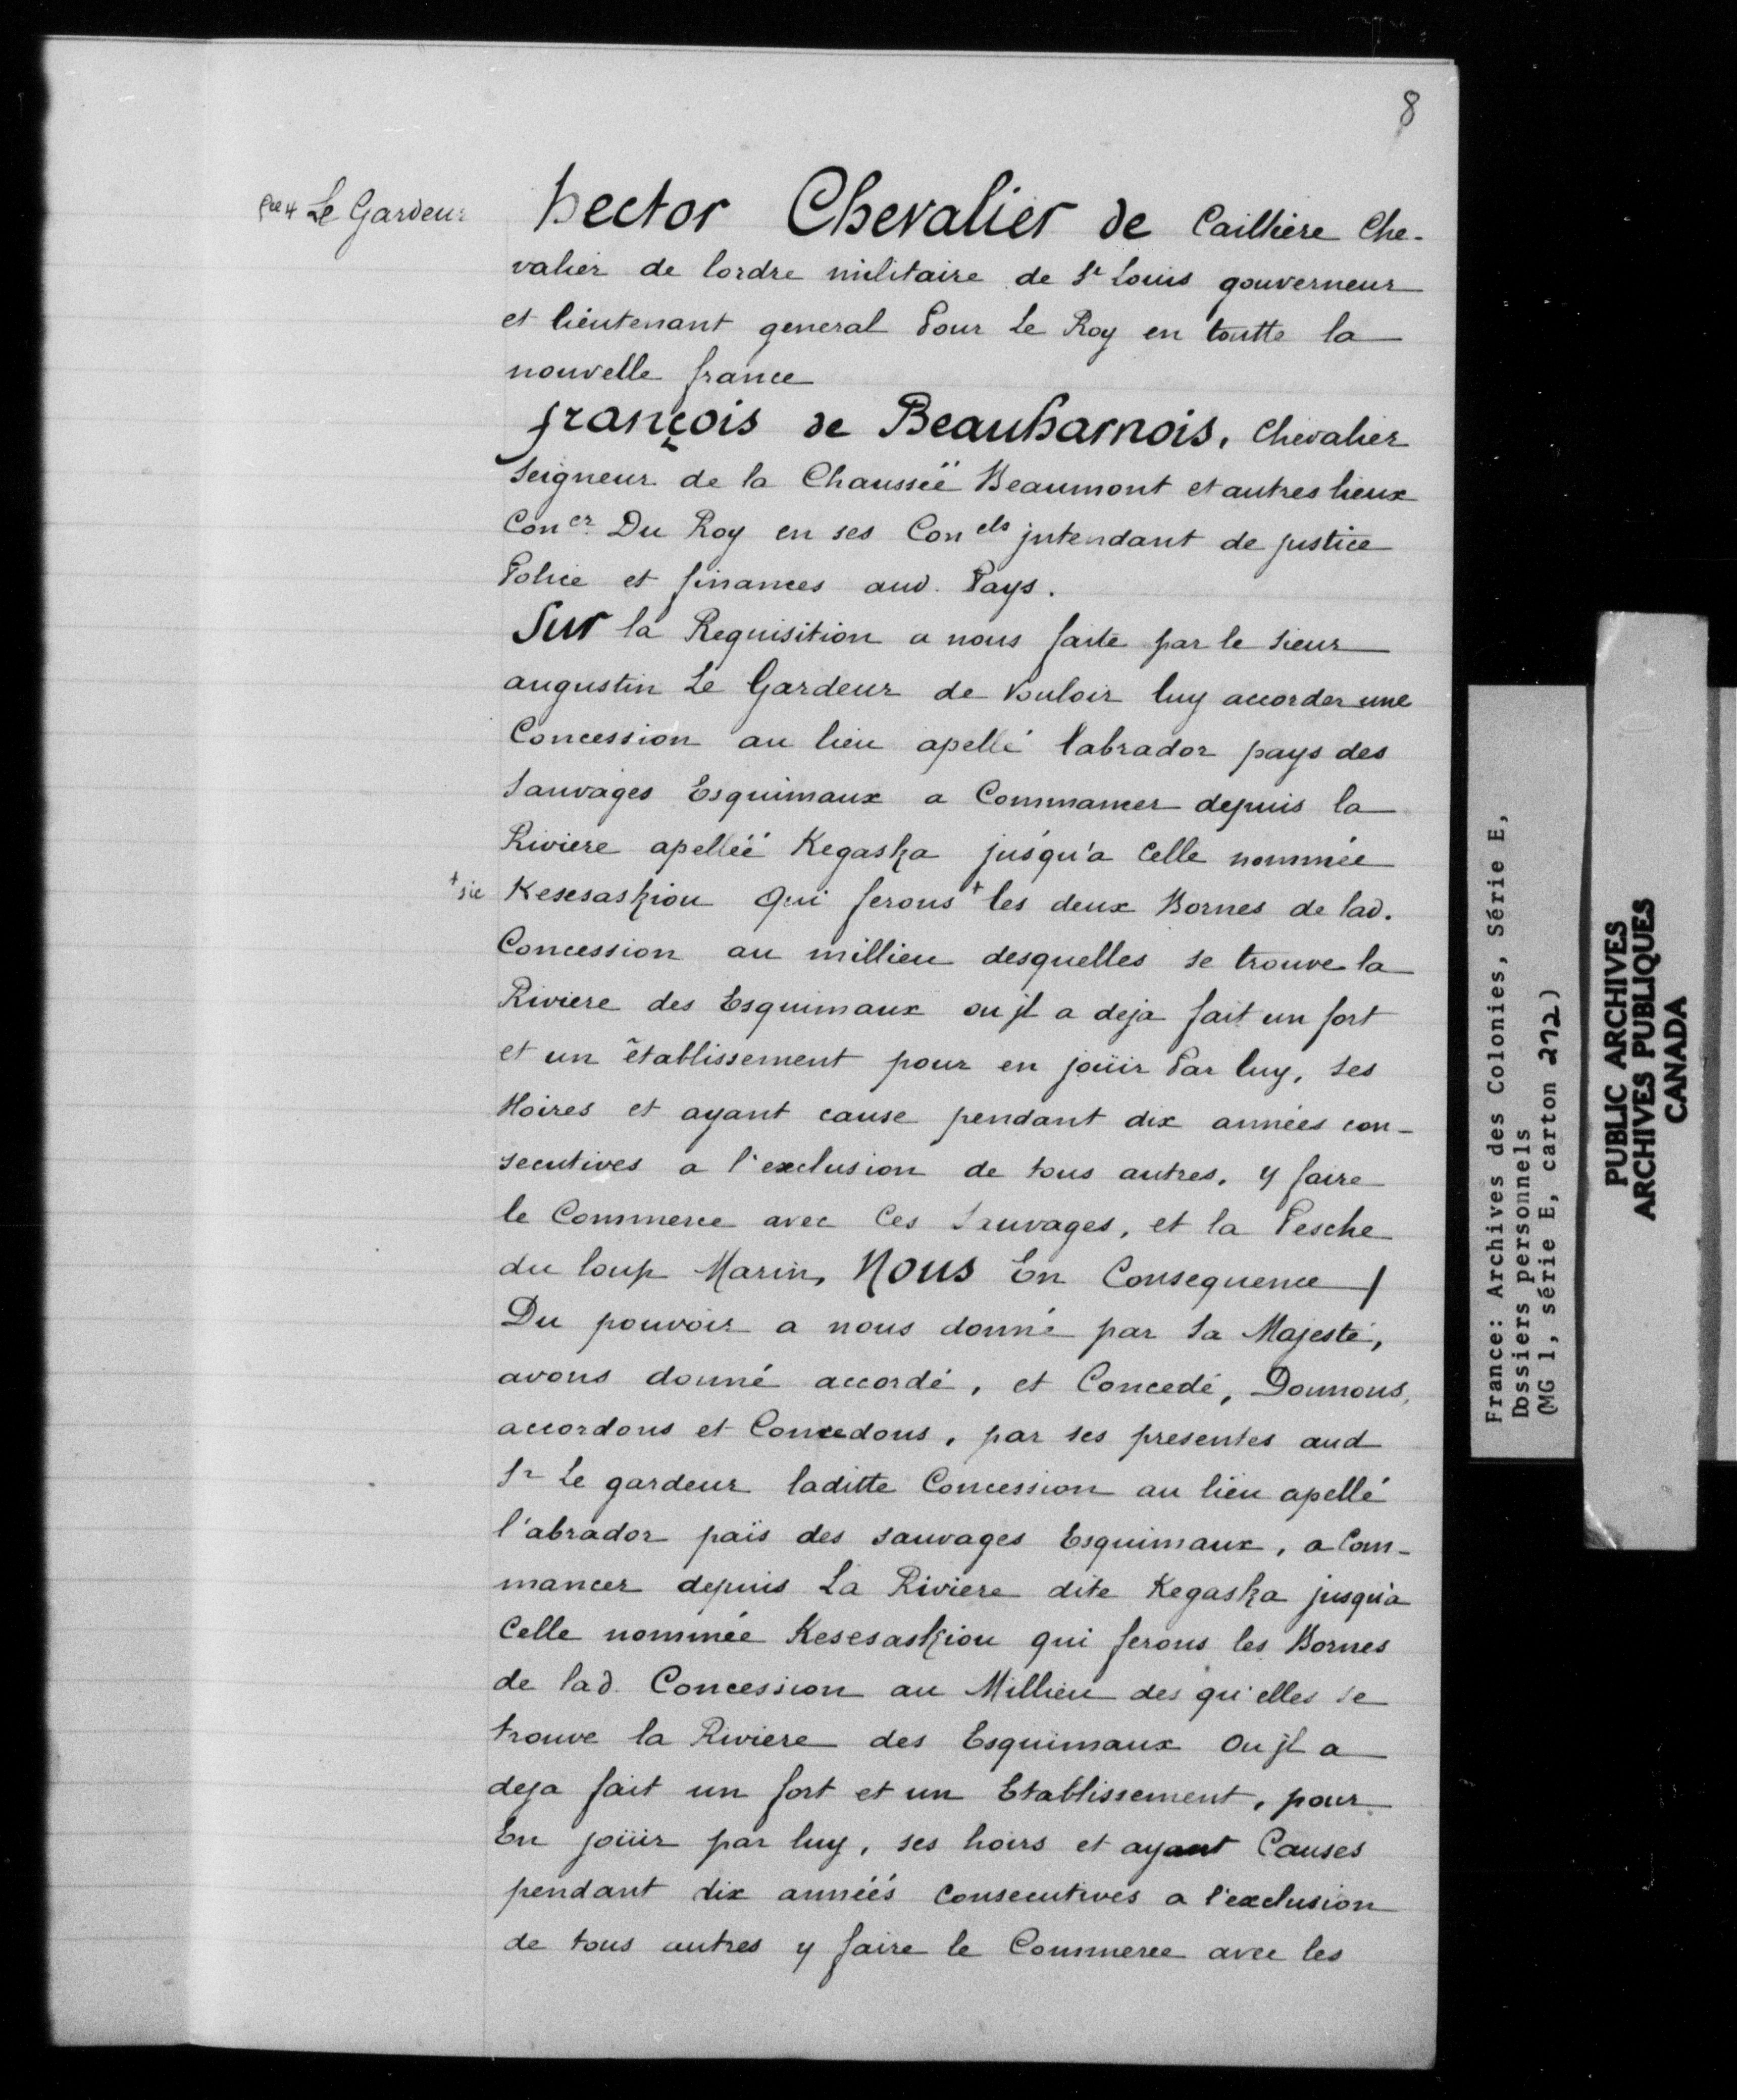 8
pce 4 Le Gardeur
hector Chevalier de Cailliere Che-
valier de lordre militaire de St Louis gouverneur
et lieutenant general Pour Le Roy en toutte la
nouvelle france
françois de Beauharnois, Chevalier
Seigneur de la Chausseë Beaumont et autres lieux
Coner Du Roy en ses Conels jntendant de justice
Police et finances aud. Pays.
Sur la Requisition a nous faite par le Sieur
augustin Le Gardeur de Vouloir luy accorder une
Concession au lieu apellé labrador pays des
Sauvages Esquimaux a Commancer depuis la
Riviere apelléé Kegaska jusqu'a Celle nommée
+ sic Kesesaskiou Qui ferons + les deux Bornes de lad.
Concession au millieu desquelles se trouve la
Riviere des Esquimaux ou jl a deja fait un fort
et un établissement pour en joüir Par luy, ses
Hoires et ayant cause pendant dix années con-
secutives a l'exclusion de tous autres, y faire
le Commerce avec Ces Sauvages, et la Pesche
du loup Marin, Nous En Consequence /
Du pouvoir a nous donné par Sa Majesté,
avons donné accordé, et Concedé, Donnons,
accordons et Concedons, par ses presentes aud
Sr Le gardeur laditte Concession au lieu apellé
l'abrador païs des sauvages Esquimaux, a Com-
mancer depuis La Riviere dite Kegaska jusqu'a
Celle nommée Kesesaskiou qui ferons les Bornes
de lad. Concession au Millieu des qu'elles se
trouve la Riviere des Esquimaux Ou jl a
deja fait un fort et un Etablissement, pour
En joüir par luy, ses hoirs et ayant Causes
pendant dix annéés Consecutives a l'exclusion
de tous autres y faire le Commerce avec les
France: Archives des Colonies, Série E,
Dossiers personnels
(MG 1, série E, carton 272)
PUBLIC ARCHIVES
ARCHIVES PUBLIQUES
CANADA